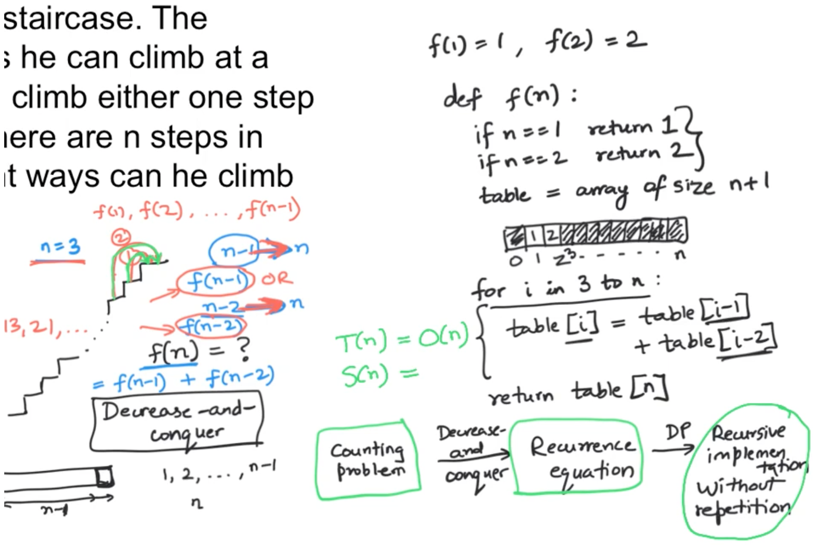 staircase. The
s he can climb at a
climb either one step
here are n steps in
t ways can he climb
f(1), f(2), . . . , f(n-1)
n=3
2
1
n-1 → n
f(n-1) OR
n-2 → n
f(n-2)
13, 21, ...
f(n) = ?
= f(n-1) + f(n-2)
Decrease-and-
conquer
1, 2, . . . , n-1
n-1
n
f(1) = 1 , f(2) = 2
def f(n) :
if n == 1 return 1
if n == 2 return 2
table = array of size n+1
1 2
0 1 2 3 - - - - - n
for i in 3 to n :
table [i] = table [i-1]
+ table [i-2]
T(n) = O(n)
S(n) =
return table [n]
Counting
problem
Decrease-
and
conquer
Recurrence
equation
DP
Recursive
implemen
tation
without
repetition